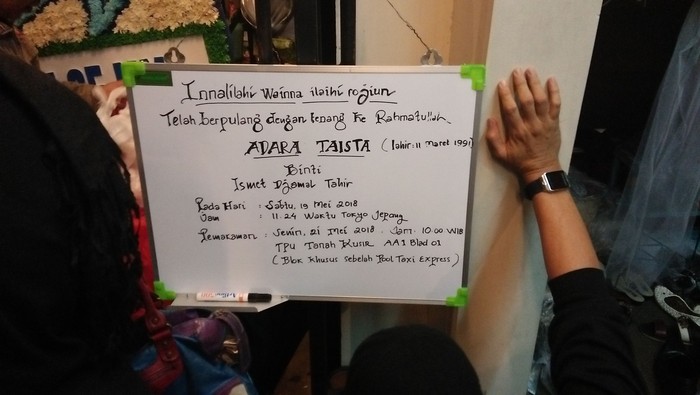 Innalilahi Wainna ilaihi rogiun
Telah berpulang dengan tenang ke Rahmatullah
ADARA TAISTA (lahir: 11 Maret 1991)
Binti
Ismet Djamal Tahir
Pada Hari : Sabtu, 19 Mei 2018
Jam : 11.24 Waktu Tokyo Jepang
Pemakaman : Senin, 21 Mei 2018. Jam: 10.00 WIB
TPU Tanah Kusir AA1 Blad 01
(Blok Khusus sebelah Pool Taxi Express)